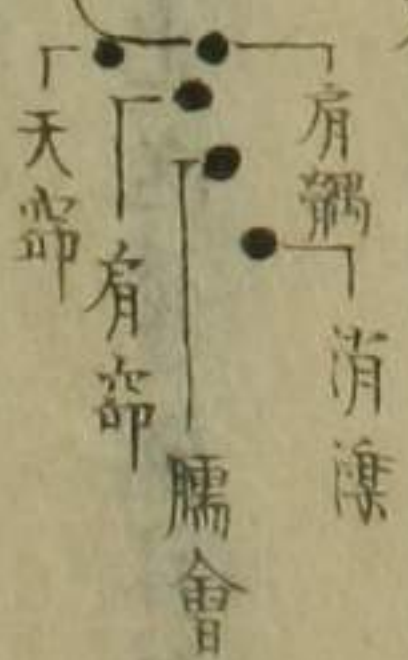 肩髃
消濼
臑會
肩窌
天窌